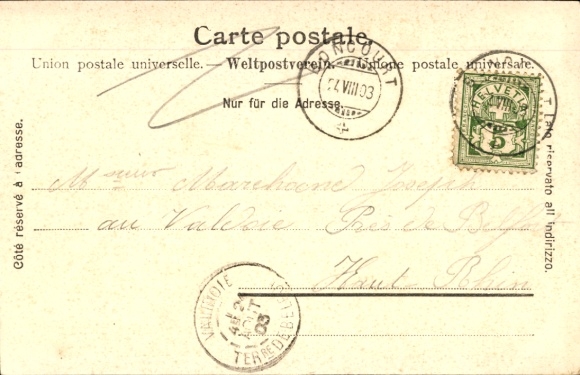 Carte postale.
Union postale universelle. — Weltpostverein. — Unione postale universale.
Nur für die Adresse.
Côté réservé à l'adresse.
Lato riservato all' indirizzo.
BONCOURT
24 VIII 03
HELVETIA
5
Msieur Marchand Joseph
au Valdoie Près de Belfort
Haut-Rhin
VALDOIE
24
AOUT
03
TERRE DE BELFORT